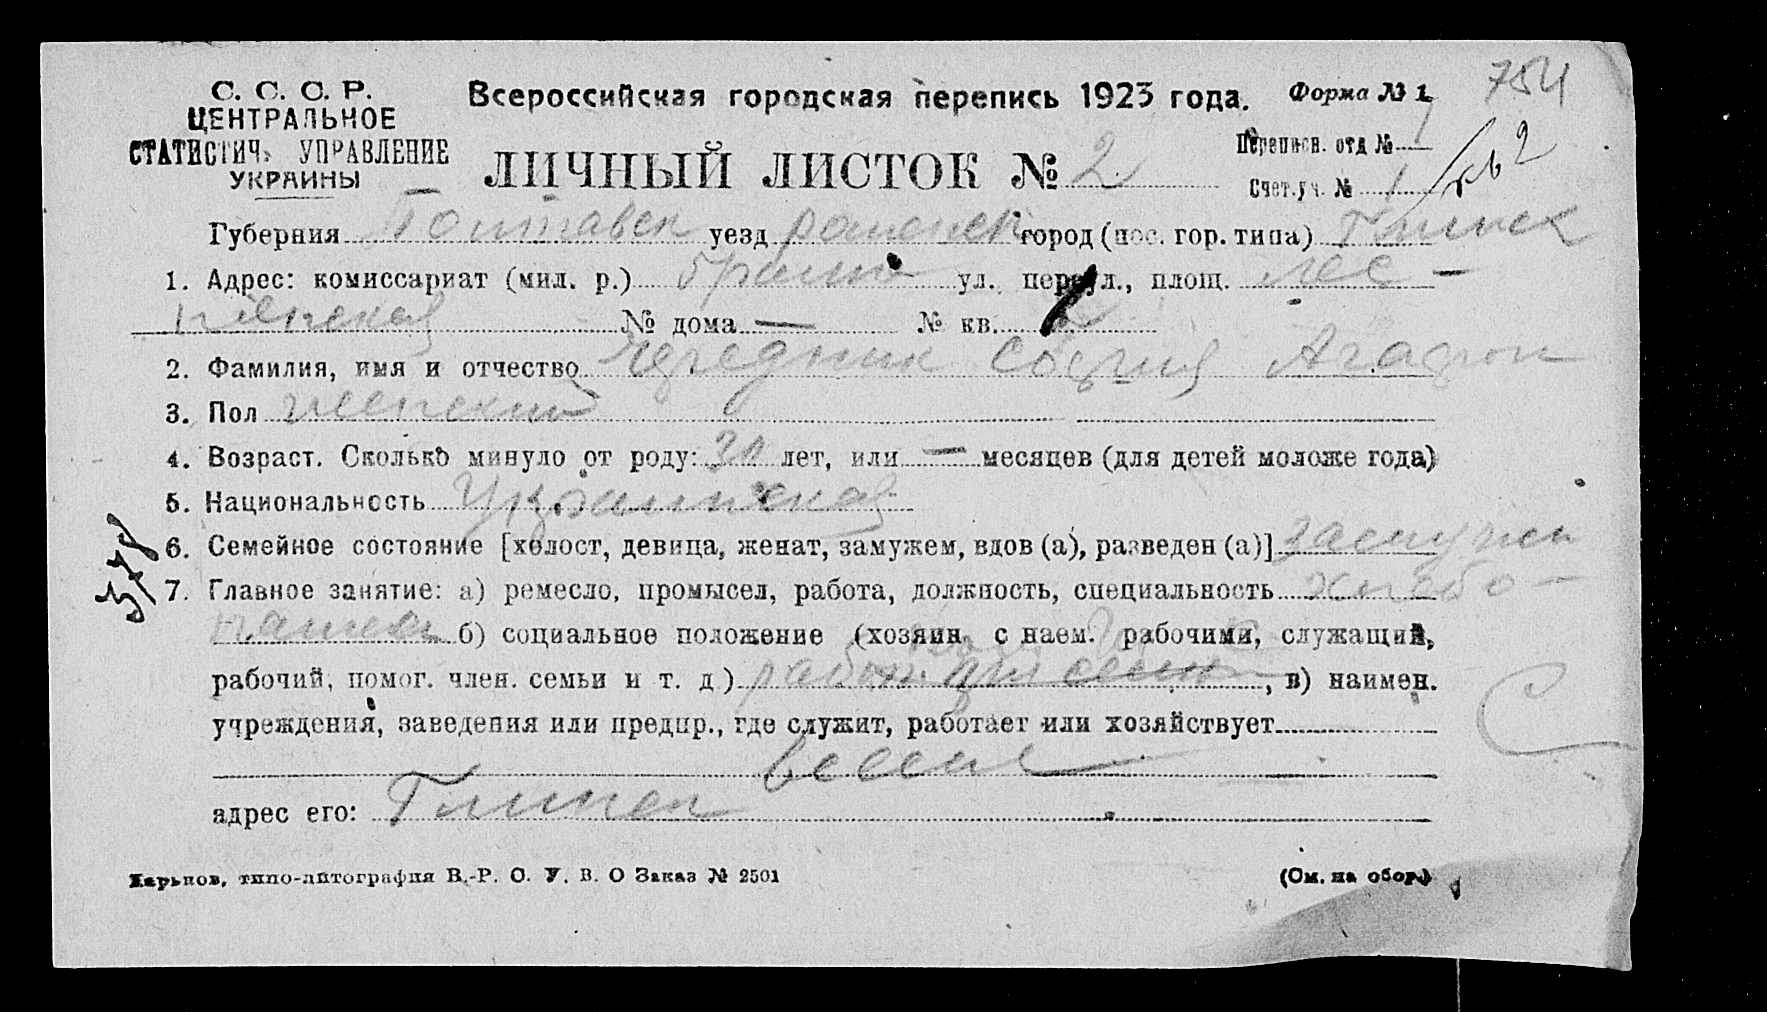 754
С. С. С. Р. Всероссийская городская перепись 1923 года. Форма № 1
ЦЕНТРАЛЬНОЕ
СТАТИСТИЧ. УПРАВЛЕНИЕ
УКРАИНЫ
ЛИЧНЫЙ ЛИСТОК № 2
Переписн. отд №
Счет.уч. № 1
Губерния Полтавск уезд роменск город (пос. гор. типа) Глинск
1. Адрес: комиссариат (мил. р.) ул. переул., площ.
№ дома — № кв.
2. Фамилия, имя и отчество Чередник София Агафон
3. Пол женский
4. Возраст. Сколько минуло от роду: 30 лет, или — месяцев (для детей моложе года)
5. Национальность Украинская
6. Семейное состояние [холост, девица, женат, замужем, вдов (а), разведен (а)] замужем
378
7. Главное занятие: а) ремесло, промысел, работа, должность, специальность хлебо-
пашец б) социальное положение (хозяин с наем. рабочими, служащий,
рабочий, помог. член. семьи и т. д) , в) наимен.
учреждения, заведения или предпр., где служит, работает или хозяйствует
адрес его: Глинск
Харьков, типо-литография В.-Р. О. У. В. О Заказ № 2501 (См. на обор.)